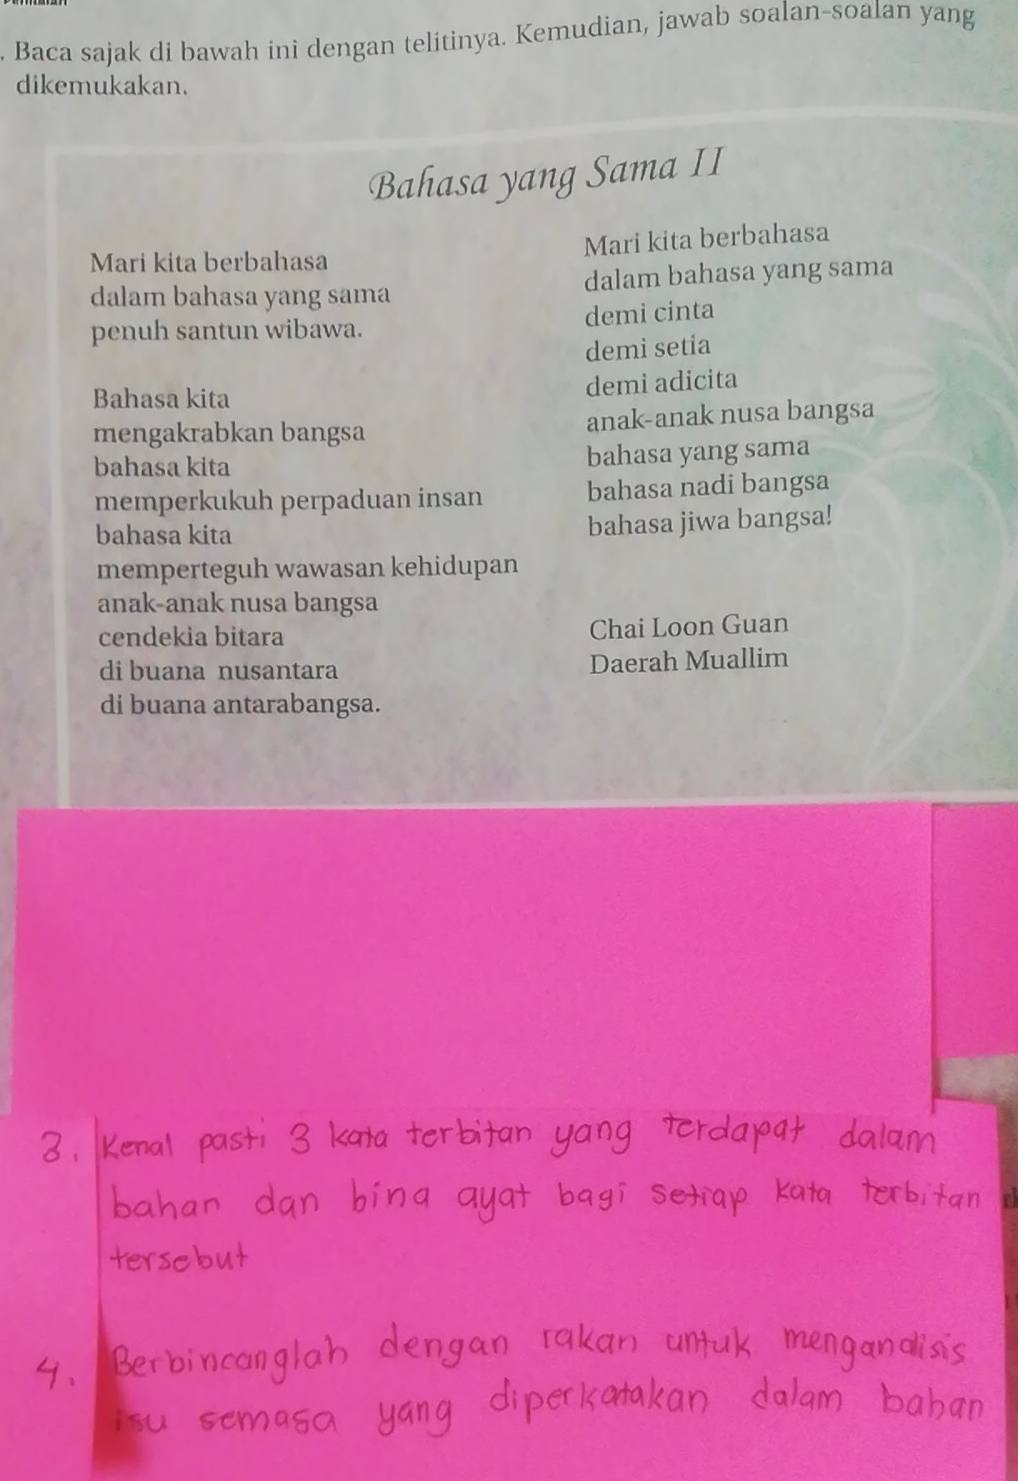 . Baca sajak di bawah ini dengan telitinya. Kemudian, jawab soalan-soalan yang
dikemukakan.
Bahasa yang Sama II
Mari kita berbahasa
dalam bahasa yang sama
penuh santun wibawa.
Bahasa kita
mengakrabkan bangsa
bahasa kita
memperkukuh perpaduan insan
bahasa kita
memperteguh wawasan kehidupan
anak-anak nusa bangsa
cendekia bitara
di buana nusantara
di buana antarabangsa.
Mari kita berbahasa
dalam bahasa yang sama
demi cinta
demi setia
demi adicita
anak-anak nusa bangsa
bahasa yang sama
bahasa nadi bangsa
bahasa jiwa bangsa!
Chai Loon Guan
Daerah Muallim
3. Kenal pasti 3 kata terbitan yang terdapat dalam
bahan dan bina ayat bagi setiap kata terbitan
tersebut
4. Berbincanglah dengan rakan untuk menganalisis
isu semasa yang diperkatakan dalam bahan